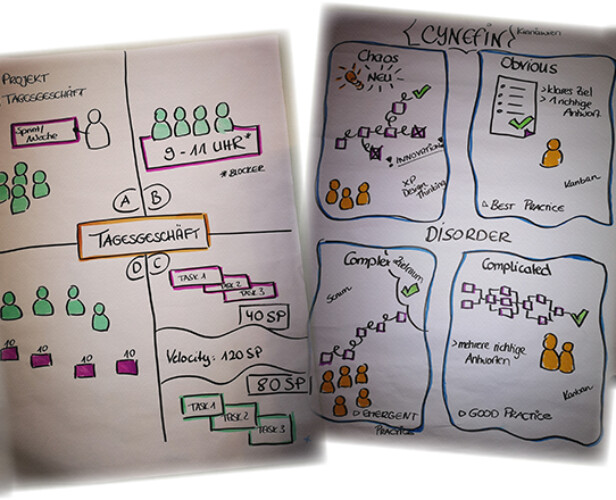 PROJEKT
TAGESGESCHÄFT
Sprint/
Woche
9-11 UHR*
*BLOCKER
A
B
TAGESGESCHÄFT
D
C
10
10
10
10
TASK 1
TASK 2
TASK 3
40 SP
Velocity: 120 SP
80 SP
TASK 1
TASK 2
TASK 3
{CYNEFIN}
Chaos
NEU
* INNOVATION *
XP
Design
Thinking
Obvious
> klares Ziel
> 1 richtige
Antwort
Kanban
▷ BEST PRACTICE
DISORDER
Complex
Zielraum
Scrum
▷ EMERGENT
PRACTICE
Complicated
> mehrere richtige
Antworten
Kanban
▷ GOOD PRACTICE